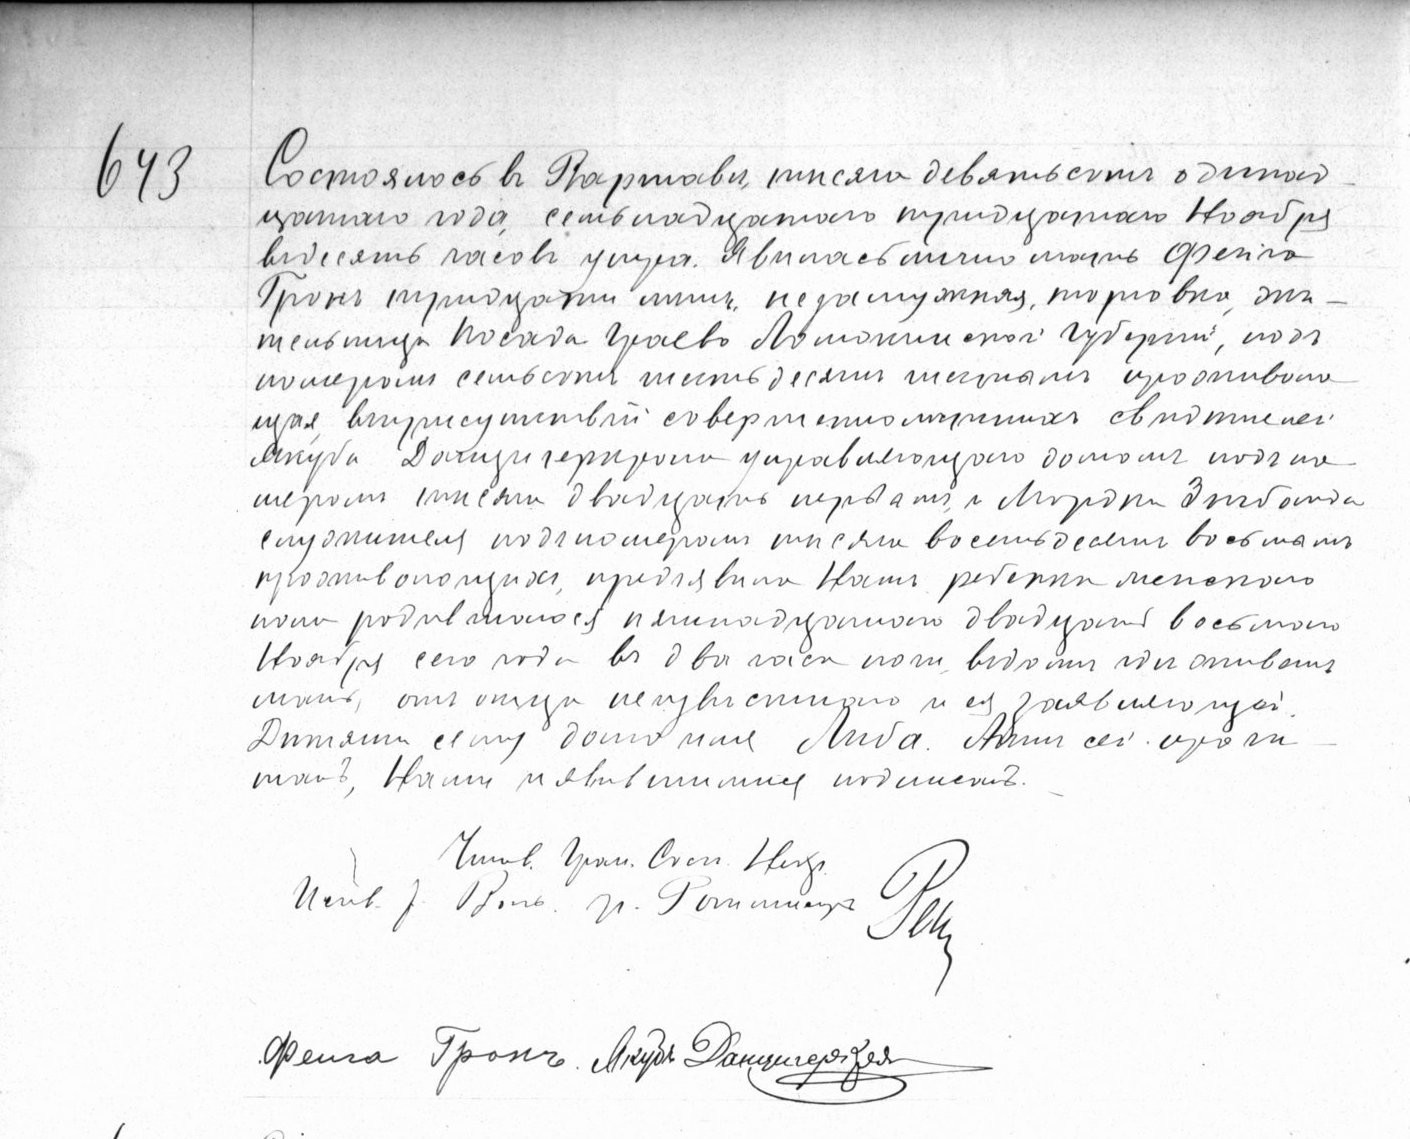 643
Состоялось въ Варшавѣ, тысяча девятьсотъ одинад-
цатаго года, семьнадцатаго тридцатаго Ноября
въ десять часовъ утра. Явилась лично мать Фейга
Гронъ тридцати лѣтъ, незамужняя, торговка, жи-
тельница Посада Граево Ломжинской губерніи, подъ
номеромъ семьсотъ шестьдесятъ проживаю-
щая, въ присутствіи совершеннолѣтнихъ свидѣтелей
Якуба Данцигеркрона управляющаго домомъ подъ но-
меромъ тысяча двадцать первымъ, и Мордки Зильбанда
служителя подъ номеромъ тысяча восемьдесятъ восьмымъ
проживающихъ, предъявила Намъ ребенка женскаго
пола родившагося пятнадцатаго двадцать восьмаго
Ноября сего года въ два часа ночи, въ домѣ гдѣ живетъ
мать, отъ отца неизвѣстнаго и ея заявляющей.
Дитяти сему дано имя Либа. Актъ сей прочи-
танъ, Нами и явившимися подписанъ.
Чинов. Гран. Сост. Нехр.
Фейга Гронъ. Якубъ